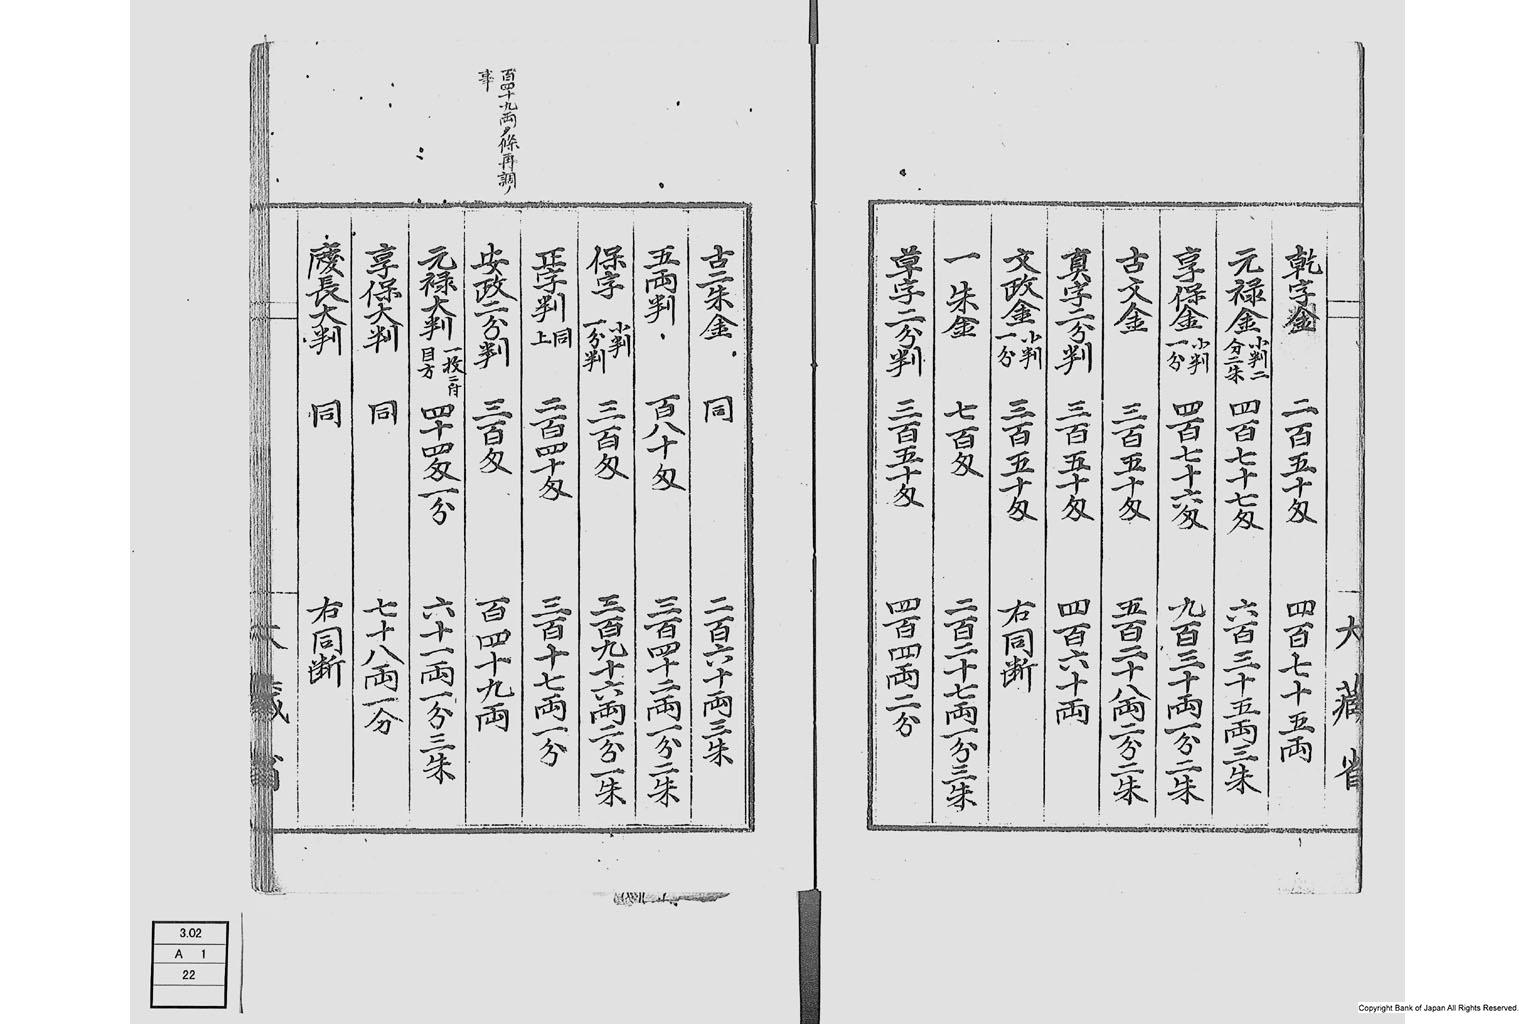 大藏省
乾字金 二百五十匁 四百七十五両
元禄金 小判二分二朱 四百七十七匁 六百三十五両三朱
享保金 小判一分 四百七十六匁 九百三十両一分二朱
古文金 三百五十匁 五百二十八両二分二朱
真字二分判 三百五十匁 四百六十両
文政金 小判一分 三百五十匁 右同断
一朱金 七百匁 二百二十七両一分三朱
草字二分判 三百五十匁 四百四両二分
古二朱金 同 二百六十両三朱
五両判 百八十匁 三百四十二両一分二朱
保字 小判一分判 三百匁 三百九十六両二分一朱
正字判 同上 二百四十匁 三百十七両一分
百四十九両ノ條再調ノ事
安政二分判 三百匁 百四十九両
元禄大判 一枚ニ付目方 四十四匁一分 六十一両一分三朱
享保大判 同 七十八両一分
慶長大判 同 右同断
大藏省
3.02
A 1
22
Copyright Bank of Japan All Rights Reserved.